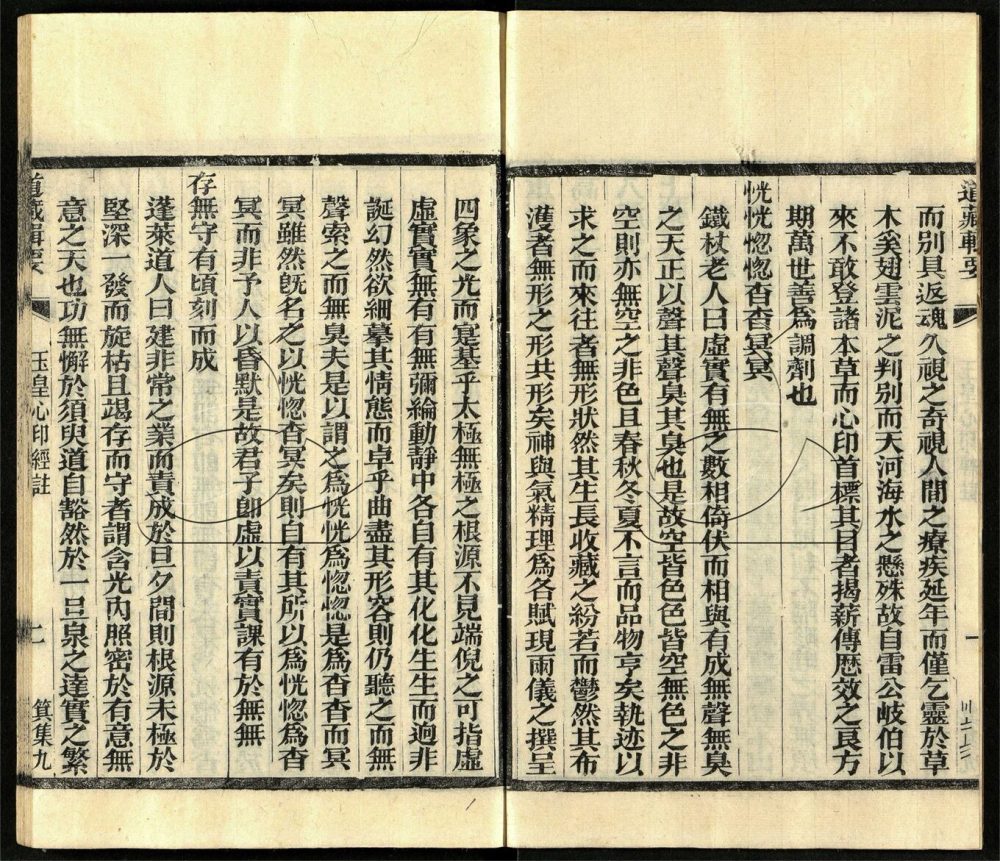 道藏輯要
而別具返魂久視之奇視人間之療疾延年而僅乞靈於草
木奚翅雲泥之判別而天河海水之懸殊故自雷公岐伯以
來不敢登諸本草而心印首標其目者揭薪傳歷效之良方
期萬世善為調劑也
恍恍惚惚杳杳冥冥
鐵杖老人曰虛實有無之數相倚伏而相與有成無聲無臭
之天正以聲其聲臭其臭也是故空皆色色皆空無色之非
空則亦無空之非色且春秋冬夏不言而品物亨矣執迹以
求之而來往者無形狀然其生長收藏之紛若而鬱然其布
濩者無形之形共形矣神與氣精理為各賦現兩儀之撰呈
四象之光而寔基乎太極無極之根源不見端倪之可指虛
虛實實無有有無彌綸動靜中各自有其化化生生而迥非
誕幻然欲細摹其情態而卓乎曲盡其形容則仍聽之而無
聲索之而無臭夫是以謂之為恍恍為惚惚是為杳杳而冥
冥雖然旣名之以恍惚杳冥矣則自有其所以為恍惚為杳
冥而非予人以昏默是故君子卽虛以責實課有於無無
存無守有頃刻而成
蓬萊道人曰建非常之業而責成於旦夕間則根源未極於
堅深一發而旋枯且竭存而守者謂含光內照密於有意無
意之天也功無懈於須臾道自豁然於一旦泉之達實之繁
道藏輯要
玉皇心印經註
箕集九